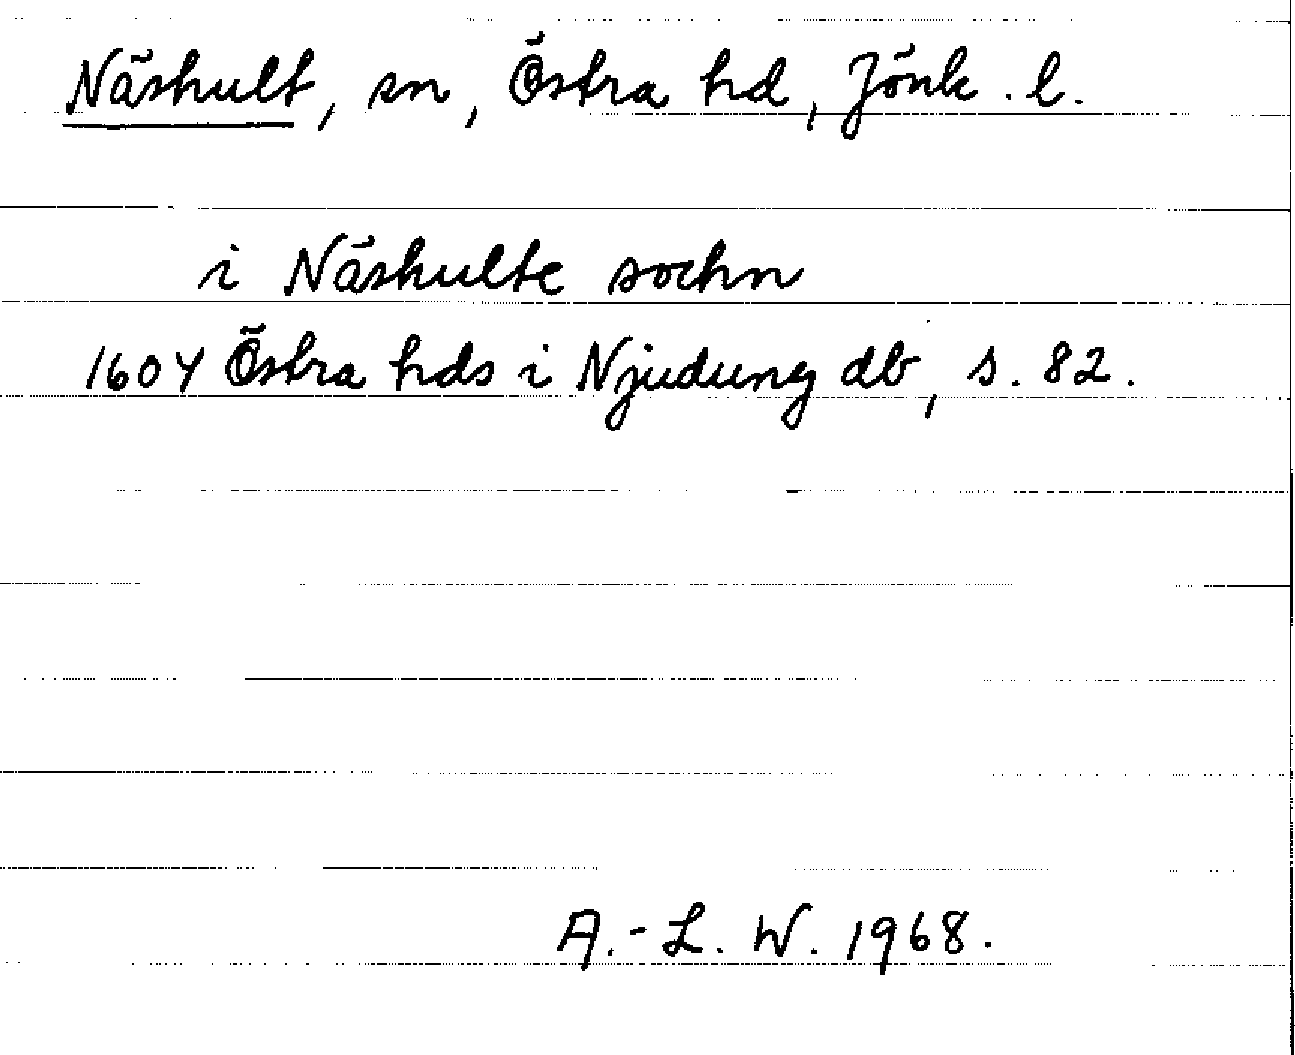 Näshult, sn, Östra hd, Jönk. l.
i Näshulte sochn
1604 Östra hds i Njudung db, s. 82.
A.-L. W. 1968.